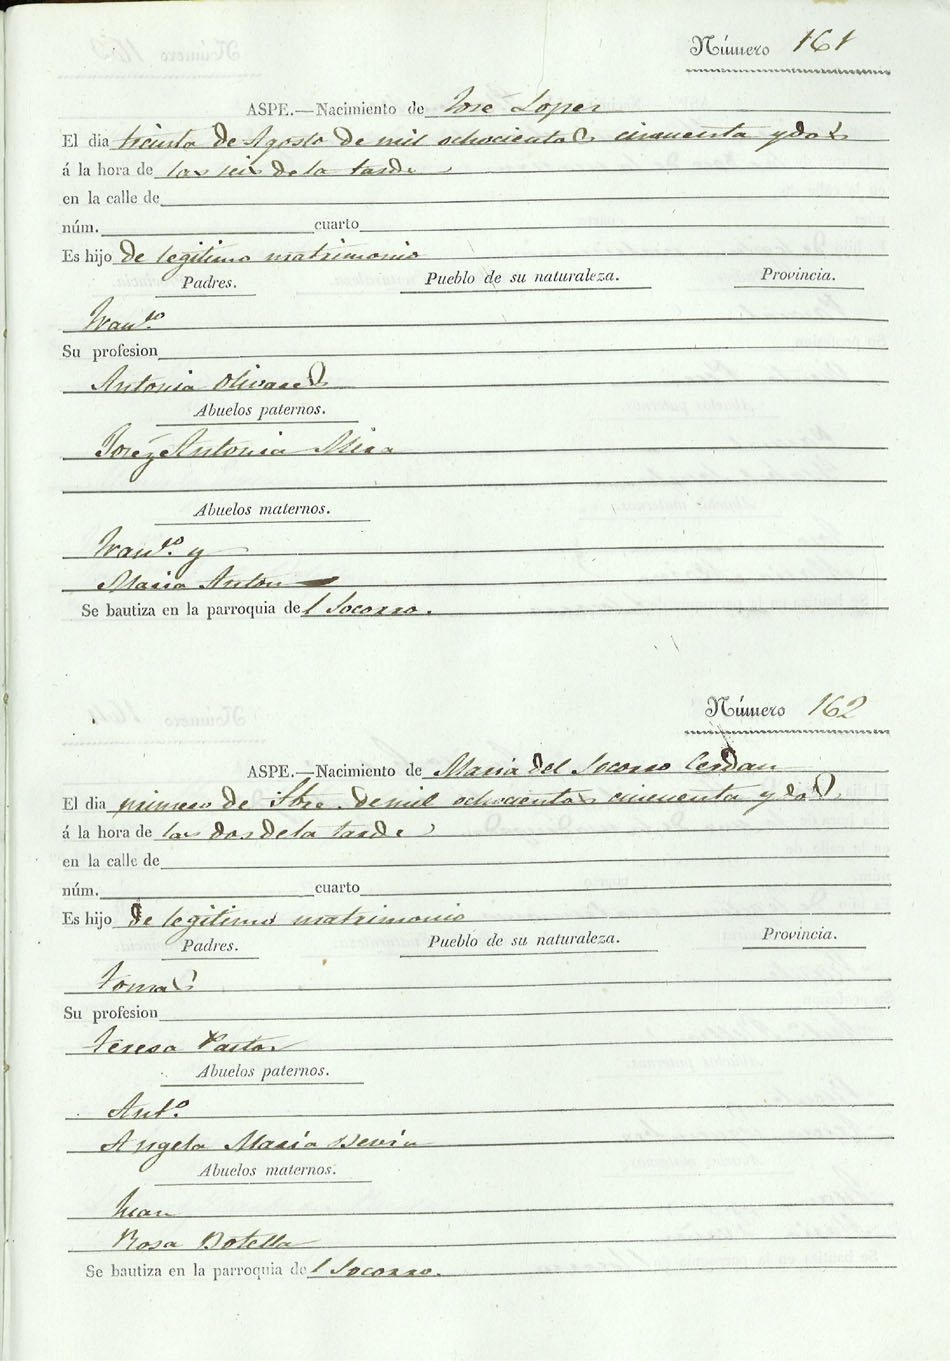 Número 161
ASPE.—Nacimiento de Jose Lopez
El dia treinta de Agosto de mil ochocientos cincuenta y dos
á la hora de las seis de la tarde
en la calle de
núm. cuarto
Es hijo de legitimo matrimonio
Padres. Pueblo de su naturaleza. Provincia.
Fran.co
Su profesion
Antonia Olivares
Abuelos paternos.
Jose y Antonia Mira
Abuelos maternos.
Fran.co y
Maria Anton
Se bautiza en la parroquia del Socorro.
Número 162
ASPE.—Nacimiento de Maria del Socorro Cerdan
El dia primero de Sbre. de mil ochocientos cincuenta y dos
á la hora de las dos de la tarde
en la calle de
núm. cuarto
Es hijo de legitimo matrimonio
Padres. Pueblo de su naturaleza. Provincia.
Tomas
Su profesion
Teresa Pastor
Abuelos paternos.
Ant.o
Angela Maria
Abuelos maternos.
Juan
Rosa Botella
Se bautiza en la parroquia del Socorro.